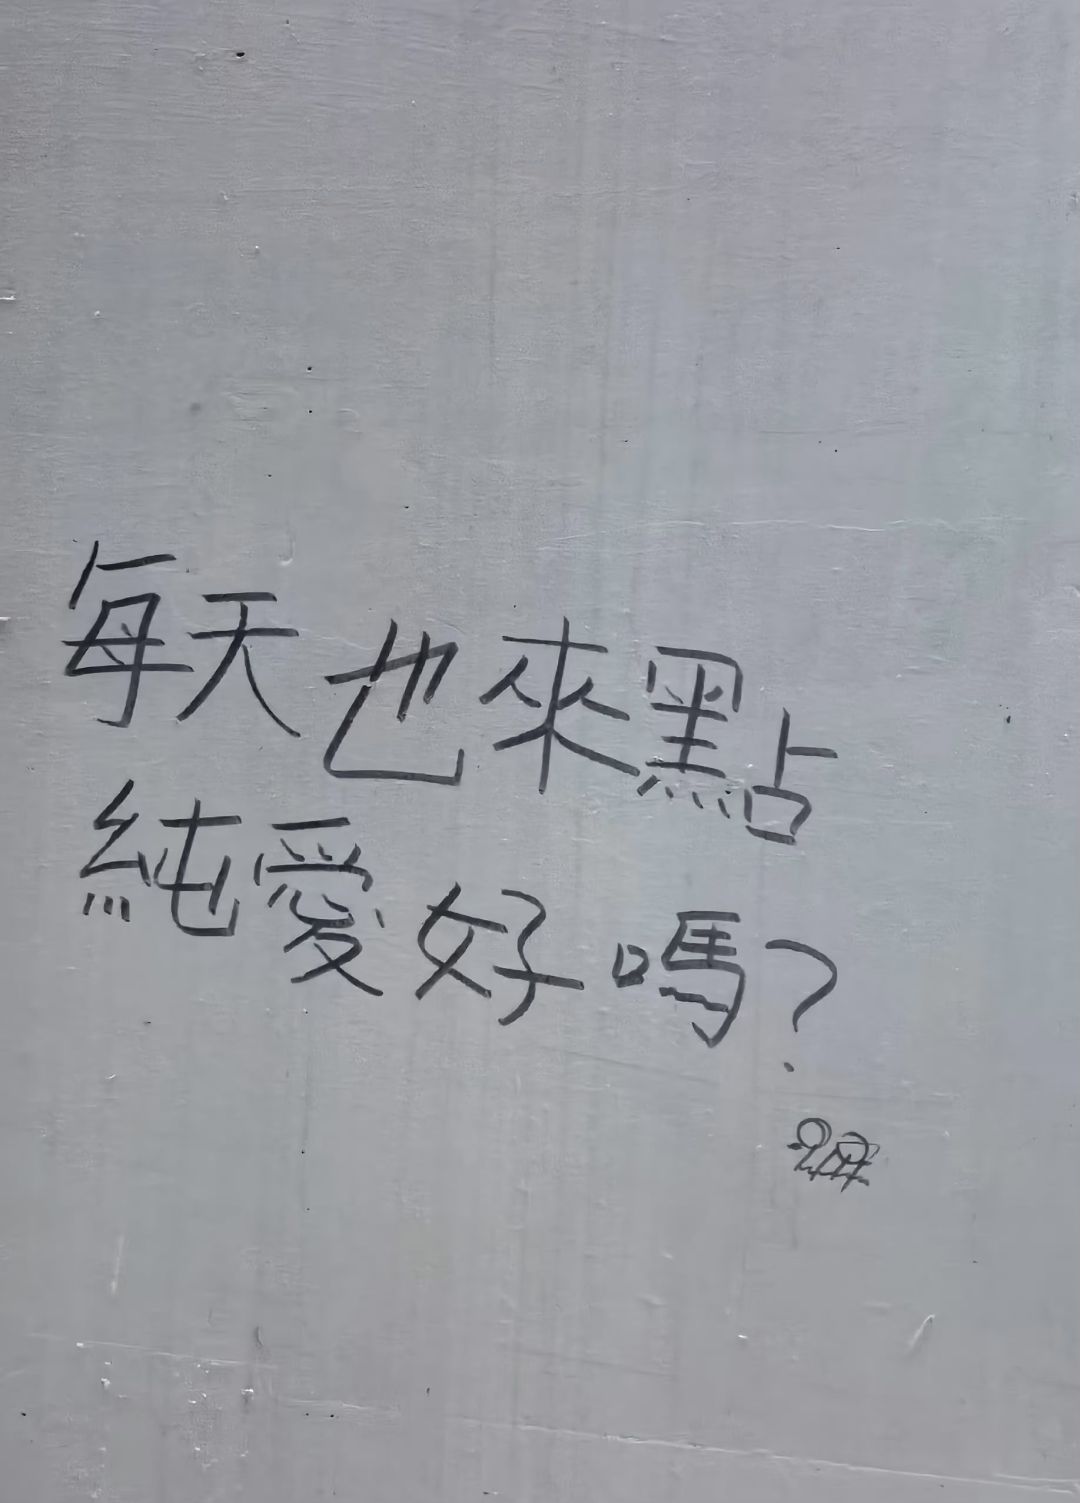 每天也來點
純愛好嗎?